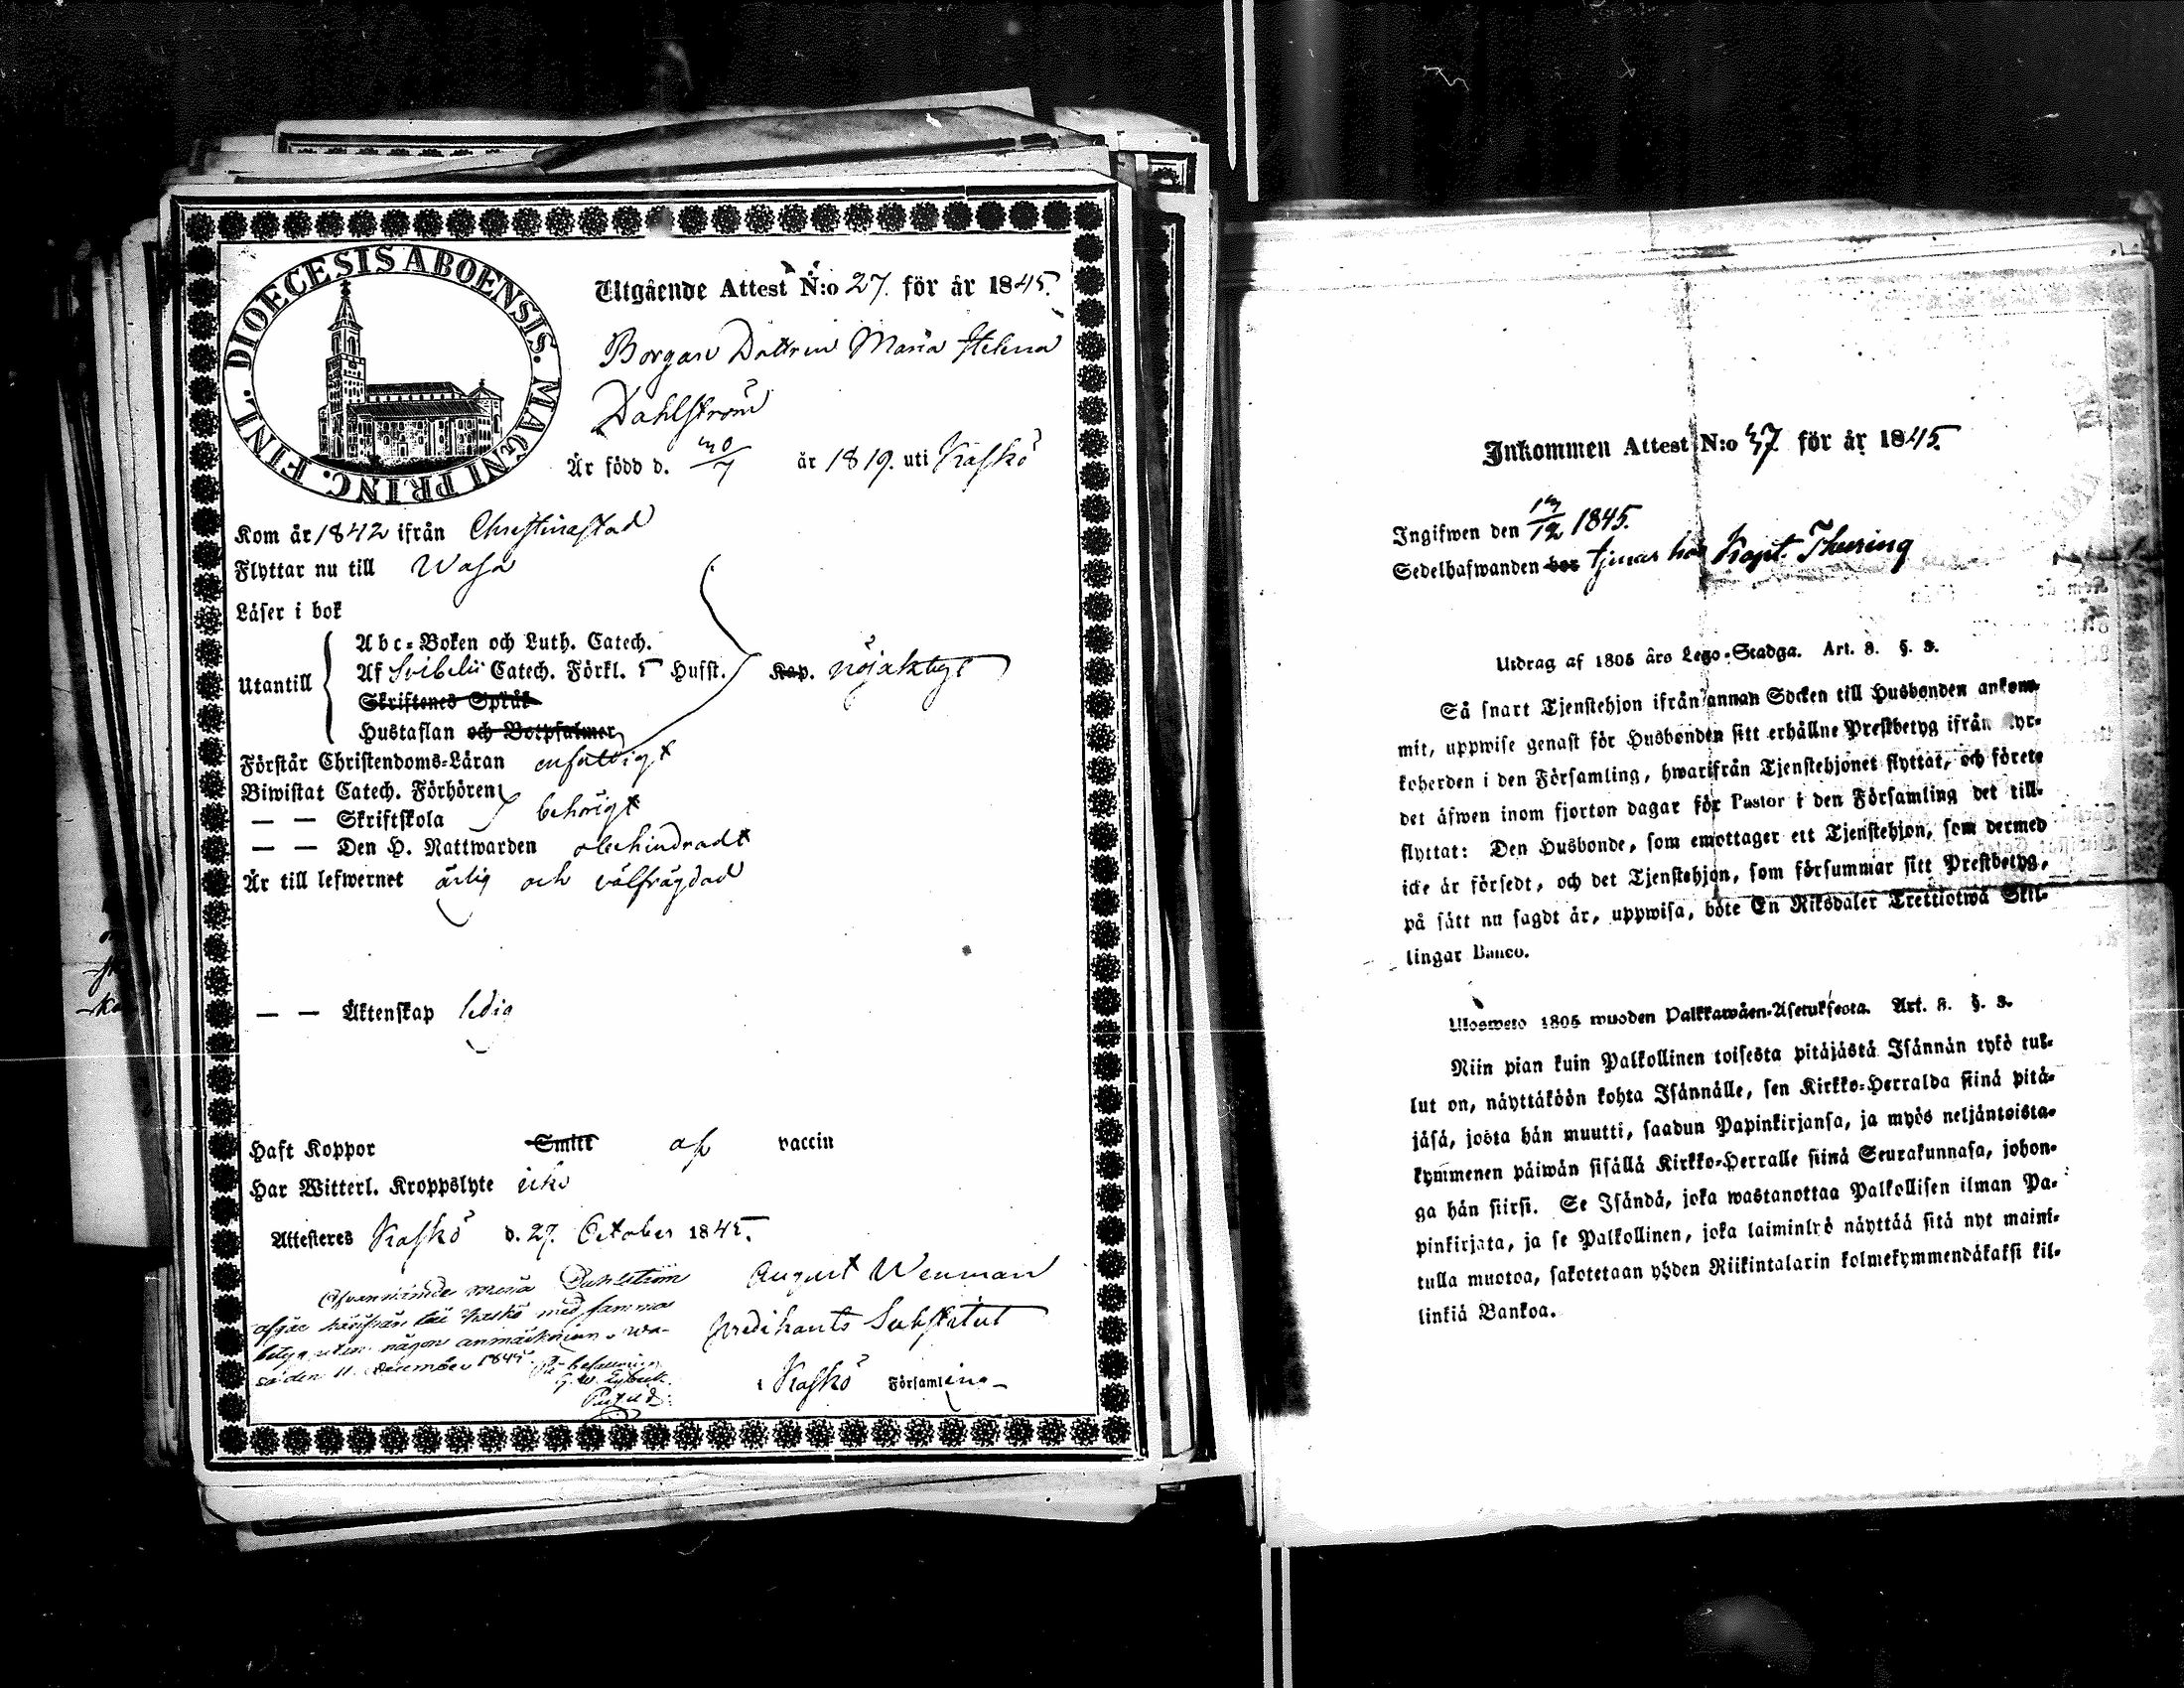 DIOECESIS ABOENSIS. MAGNI PRINC. FINL.
Utgående Attest N:o 27. för år 1845.
Borgare Dottren Maria Helena
Dahlström
Är född d. 30/7 år 1819. uti Kaskö
Kom år 1842 ifrån Christinastad
Flyttar nu till Wasa
Läser i bok
Utantill
Abc-Boken och Luth. Catech.
Af Svibelii Catech. Förkl. 5 Husst. Kap. nöjaktigt
Skriftenes Språk
Hustaflan och Botpsalmer
Förstår Christendoms-Läran enfaldigt
Biwistat Catech. Förhören
— — Skriftskola behörigt
— — Den H. Nattwarden obehindradt
Är till lefwernet ärlig och välfrägdad
— — Äktenskap ledig
Haft Koppor Smitt af vaccin
Har Witterl. Kroppslyte icke
Attesteras Kaskö d. 27. October 1845.
August Wenman
Predikants Substitut
i Kaskö Församling
Ofvannämnde Maria Dahlström
afgår härifrån till Kaskö med samma
betyg utan någon anmärkning. Wa-
sa den 11 December 1845.
Inkommen Attest N:o 37 för år 1845.
Ingifwen den 13/12 1845.
Sedelhafwanden bor tjenar hos Kapt. Thuring
Utdrag af 1805 års Lego-Stadga. Art. 3. §. 3.
Så snart Tjenstehjon ifrån annan Socken till Husbonden ankom-
mit, uppwise genast för Husbonden sitt erhållne Prestbetyg ifrån Kyr-
koherden i den Församling, hwarifrån Tjenstehjonet flyttat, och förete
det äfwen inom fjorton dagar för Pastor i den Församling det till-
flyttat: Den Husbonde, som emottager ett Tjenstehjon, som dermed
icke är försedt, och det Tjenstehjon, som försummar sitt Prestbetyg,
på sätt nu sagdt är, uppwisa, böte En Riksdaler Trettiotwå Skil-
lingar Banco.
Ulosweto 1805 wuoden Palkkawäen-Asetuksesta. Art. 3. §. 3.
Niin pian kuin Palkollinen toisesta pitäjästä Isännän tykö tul-
lut on, näyttäköön kohta Isännälle, sen Kirkko-Herralda siinä pitä-
jäsä, josta hän muutti, saadun Papinkirjansa, ja myös neljäntoista-
kymmenen päiwän sisällä Kirkko-Herralle siinä Seurakunnasa, johon-
ga hän siirsi. Se Isändä, joka wastanottaa Palkollisen ilman Pa-
pinkirjata, ja se Palkollinen, joka laiminlyö näyttää sitä nyt maini-
tulla muotoa, sakotetaan yhden Riikintalarin kolmekymmendäkaksi kil-
linkiä Bankoa.